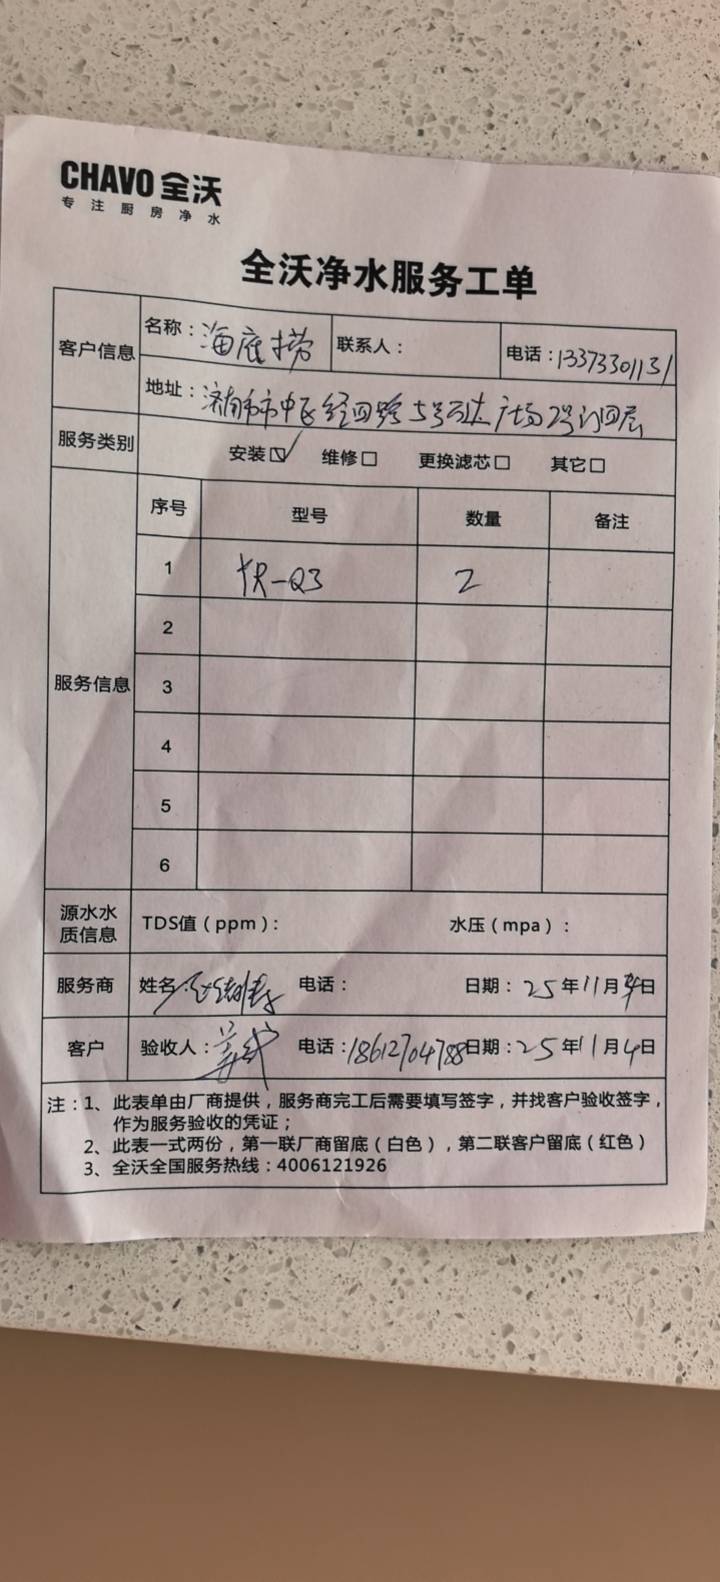 CHAVO 全沃
专注厨房净水
全沃净水服务工单
客户信息 名称：海底捞 联系人： 电话：13373301131
地址：济南市市中区经四路5号万达广场2号门四层
服务类别 安装☑ 维修□ 更换滤芯□ 其它□
服务信息 序号 型号 数量 备注
1 YR-Q3 2
2
3
4
5
6
源水水质信息 TDS值（ppm）： 水压（mpa）：
服务商 姓名： 电话： 日期：25年11月4日
客户 验收人： 电话：18612704788 日期：25年11月4日
注：1、此表单由厂商提供，服务商完工后需要填写签字，并找客户验收签字，
作为服务验收的凭证；
2、此表一式两份，第一联厂商留底（白色），第二联客户留底（红色）
3、全沃全国服务热线：4006121926